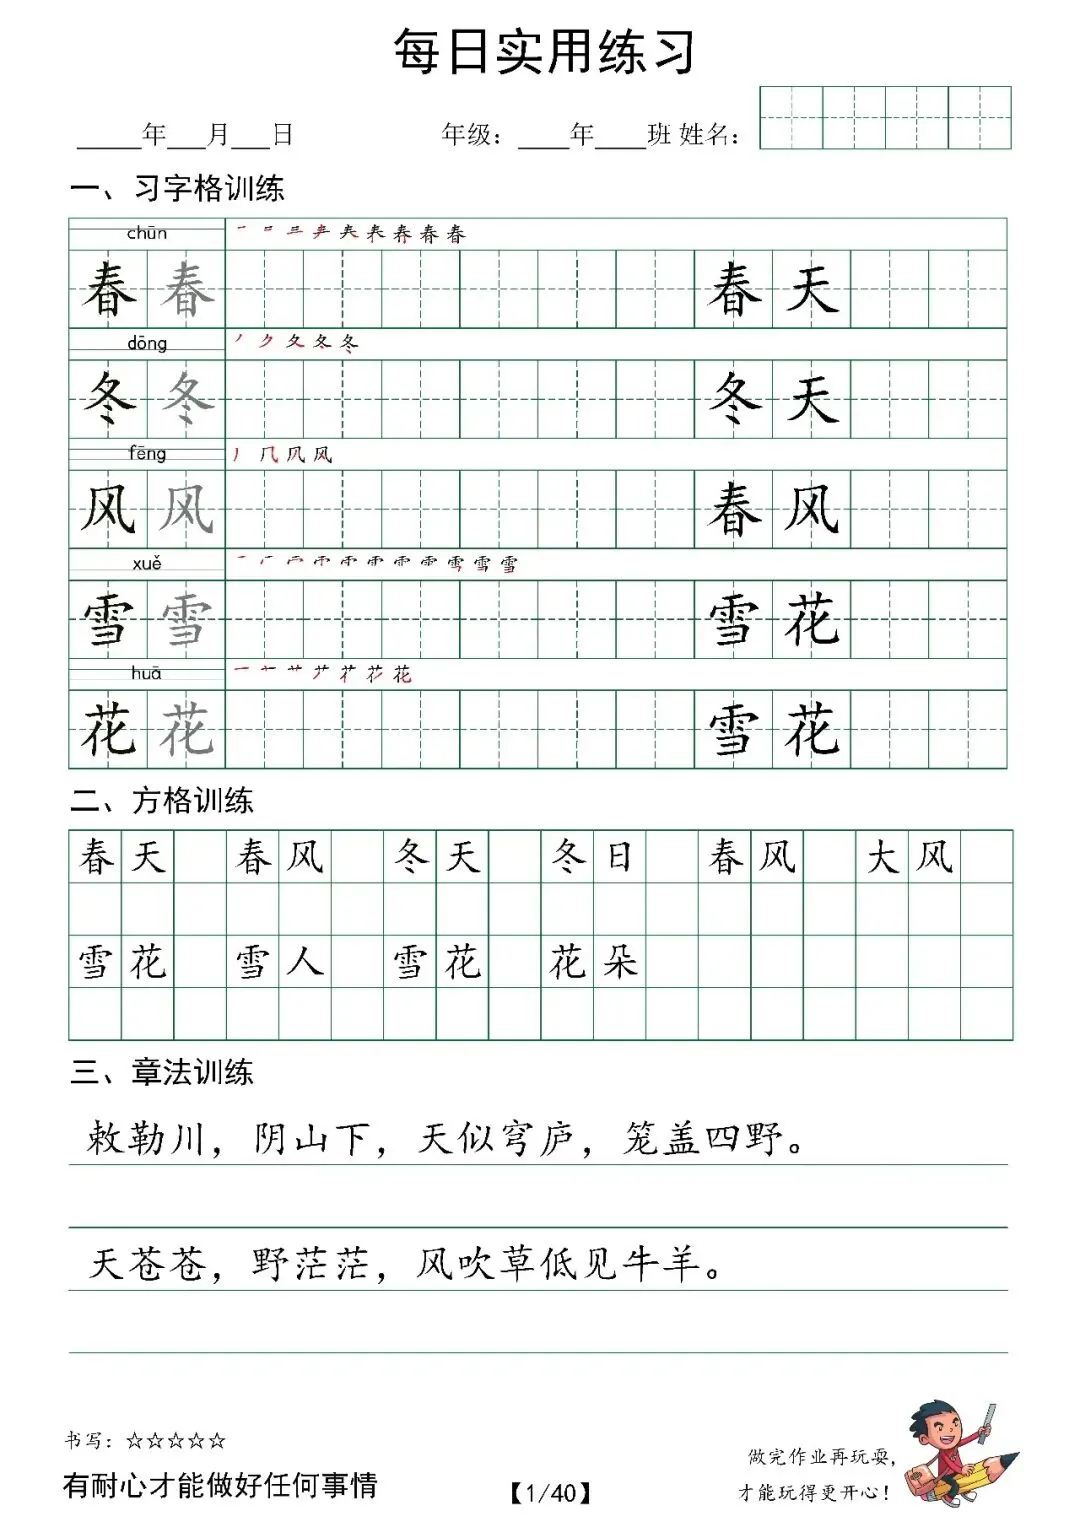 每日实用练习
____年___月___日 年级：____年____班 姓名：
一、习字格训练
chūn
春 春 春 天
dōng
冬 冬 冬 天
fēng
风 风 春 风
xuě
雪 雪 雪 花
huā
花 花 雪 花
二、方格训练
春 天 春 风 冬 天 冬 日 春 风 大 风
雪 花 雪 人 雪 花 花 朵
三、章法训练
敕勒川，阴山下，天似穹庐，笼盖四野。
天苍苍，野茫茫，风吹草低见牛羊。
书写：☆☆☆☆☆
有耐心才能做好任何事情
【1/40】
做完作业再玩耍，
才能玩得更开心！